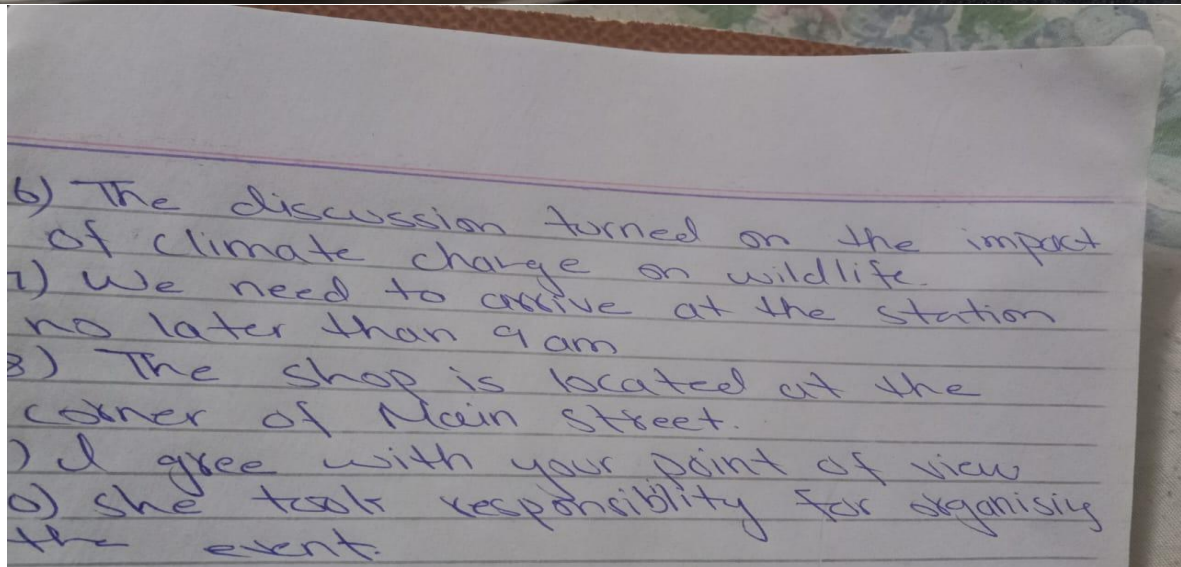 6) The discussion turned on the impact
of climate change on wildlife.
7) We need to arrive at the station
no later than 9 am
8) The shop is located at the
corner of Main Street.
) I gree with your point of view
0) She took responsiblity for organising
the event.